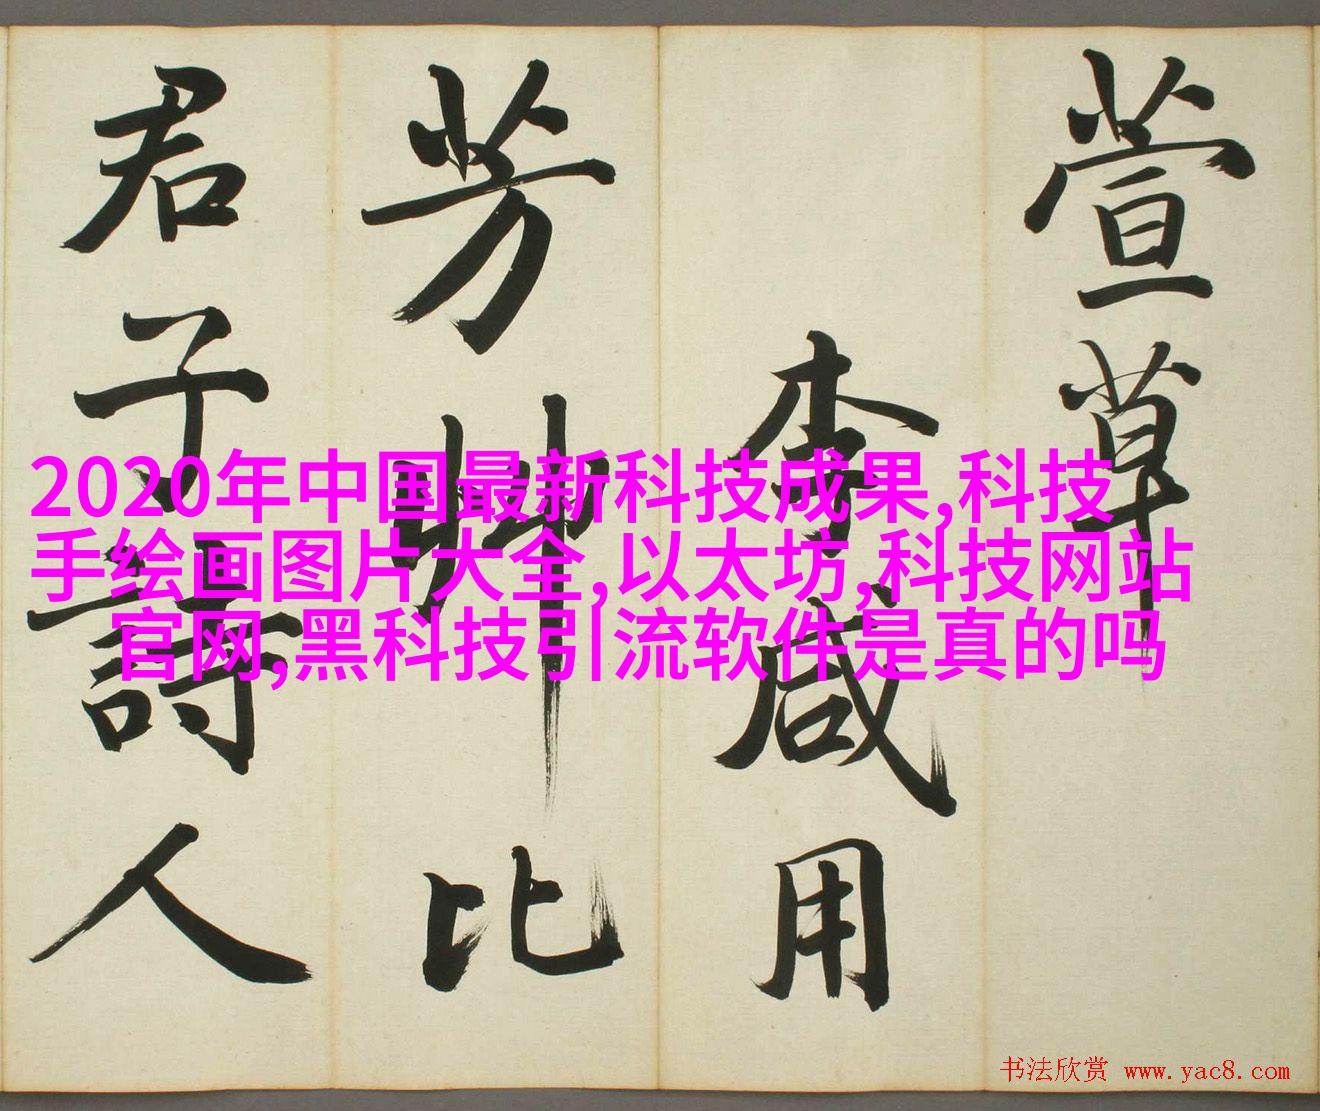 萱草
李咸用
芳艸比
君子詩人
2020年中国最新科技成果,科技
手绘画图片大全,以太坊,科技网站
官网,黑科技引流软件是真的吗
书法欣赏 www.yac8.com